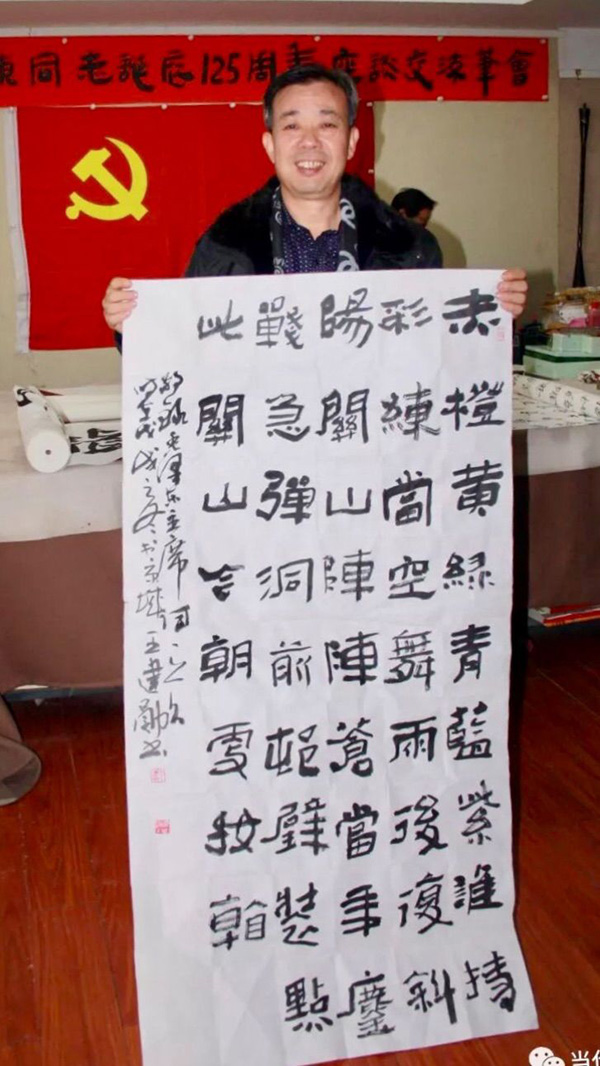 東同志誕辰125周年座談交流筆會
赤橙黃綠青藍紫誰持
彩練當空舞雨後復斜
陽關山陣陣蒼當年鏖
戰急彈洞前邨壁裝點
此關山今朝更好看
敬録毛澤東主席詞
戊戌之冬王建勛书
当